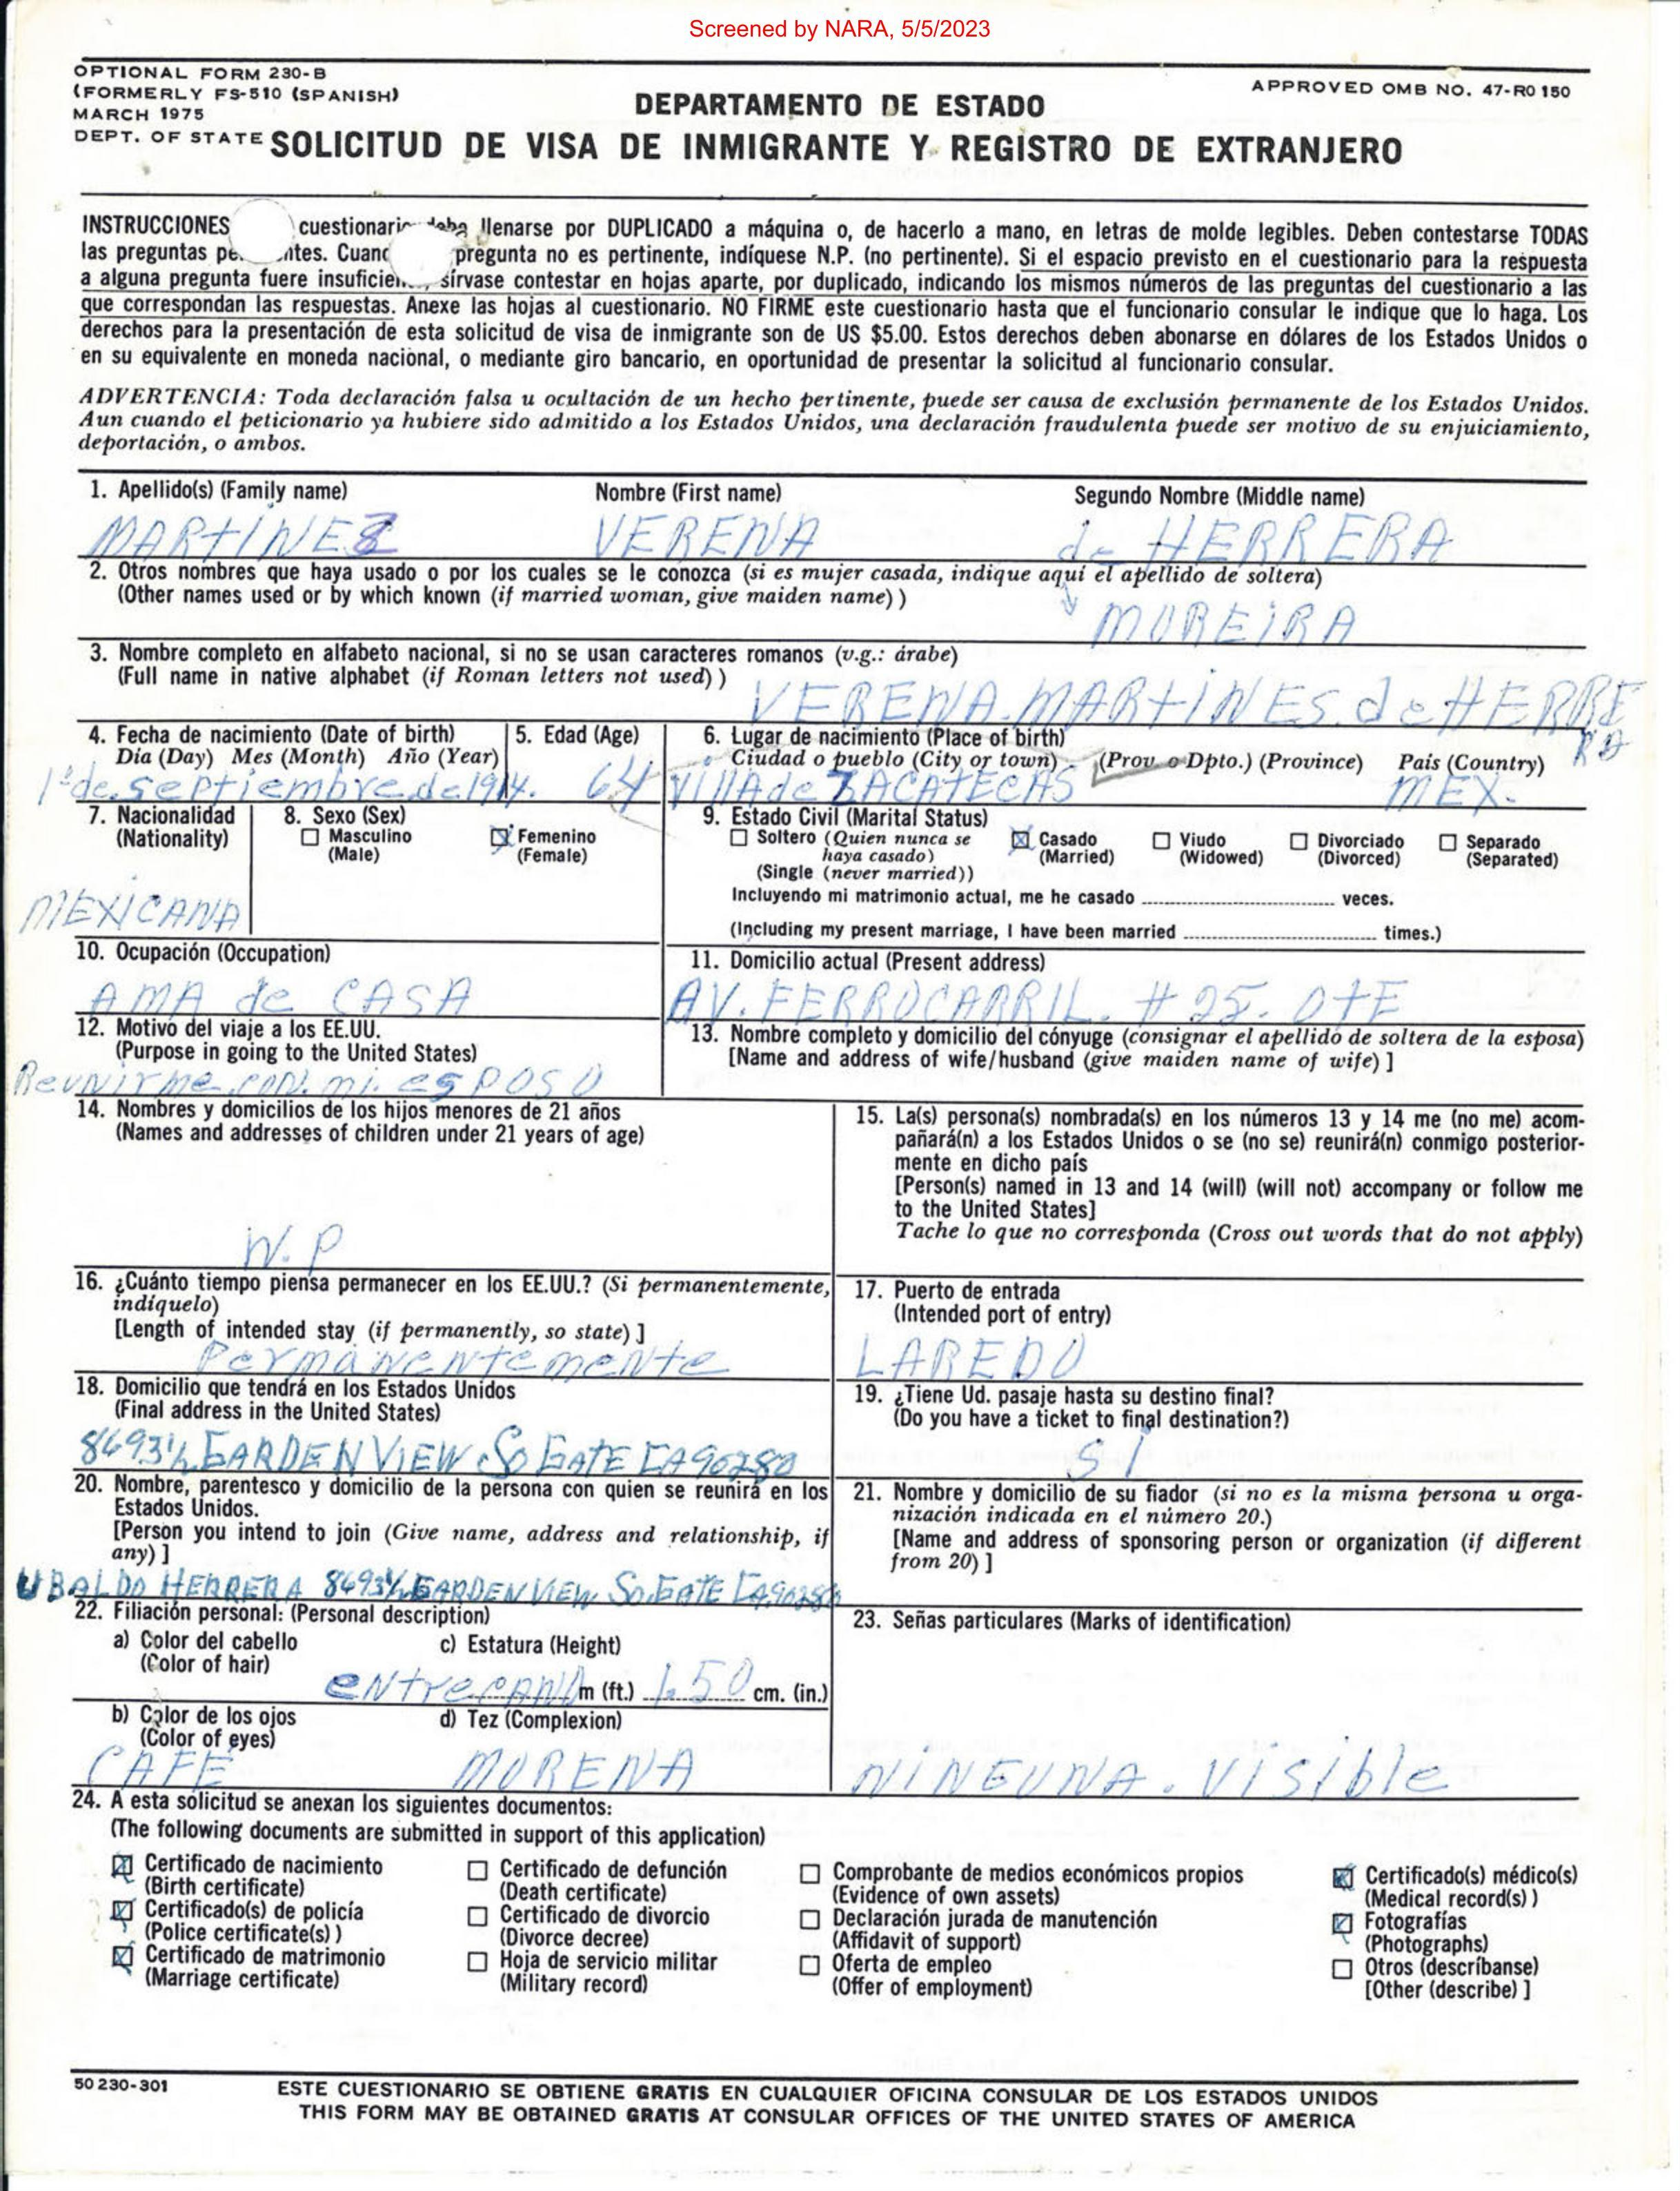 Screened by NARA, 5/5/2023
OPTIONAL FORM 230-B
(FORMERLY FS-510 (SPANISH)
MARCH 1975
DEPT. OF STATE
APPROVED OMB NO. 47-R0 150
DEPARTAMENTO DE ESTADO
SOLICITUD DE VISA DE INMIGRANTE Y REGISTRO DE EXTRANJERO
INSTRUCCIONES cuestionario deba llenarse por DUPLICADO a máquina o, de hacerlo a mano, en letras de molde legibles. Deben contestarse TODAS
las preguntas pe ntes. Cuand pregunta no es pertinente, indíquese N.P. (no pertinente). Si el espacio previsto en el cuestionario para la respuesta
a alguna pregunta fuere insuficien , sírvase contestar en hojas aparte, por duplicado, indicando los mismos números de las preguntas del cuestionario a las
que correspondan las respuestas. Anexe las hojas al cuestionario. NO FIRME este cuestionario hasta que el funcionario consular le indique que lo haga. Los
derechos para la presentación de esta solicitud de visa de inmigrante son de US $5.00. Estos derechos deben abonarse en dólares de los Estados Unidos o
en su equivalente en moneda nacional, o mediante giro bancario, en oportunidad de presentar la solicitud al funcionario consular.
ADVERTENCIA: Toda declaración falsa u ocultación de un hecho pertinente, puede ser causa de exclusión permanente de los Estados Unidos.
Aun cuando el peticionario ya hubiere sido admitido a los Estados Unidos, una declaración fraudulenta puede ser motivo de su enjuiciamiento,
deportación, o ambos.
1. Apellido(s) (Family name) Nombre (First name) Segundo Nombre (Middle name)
MARTINEZ VERENA de HERRERA
2. Otros nombres que haya usado o por los cuales se le conozca (si es mujer casada, indique aquí el apellido de soltera)
(Other names used or by which known (if married woman, give maiden name) )
MOREIRA
3. Nombre completo en alfabeto nacional, si no se usan caracteres romanos (v.g.: árabe)
(Full name in native alphabet (if Roman letters not used) )
VERENA. MARTINES. de HERRE
RA
4. Fecha de nacimiento (Date of birth) 5. Edad (Age) 6. Lugar de nacimiento (Place of birth)
Día (Day) Mes (Month) Año (Year) Ciudad o pueblo (City or town) (Prov. o Dpto.) (Province) País (Country)
1º de septiembre de 1914. 64 VillA de ZACATECAS MEX.
7. Nacionalidad 8. Sexo (Sex) 9. Estado Civil (Marital Status)
(Nationality) Masculino Femenino Soltero (Quien nunca se Casado Viudo Divorciado Separado
(Male) (Female) haya casado) (Married) (Widowed) (Divorced) (Separated)
(Single (never married))
Incluyendo mi matrimonio actual, me he casado veces.
MEXICANA
(Including my present marriage, I have been married times.)
10. Ocupación (Occupation) 11. Domicilio actual (Present address)
AMA de CASA AV. FERROCARRIL. # 25. OTE
12. Motivo del viaje a los EE.UU. 13. Nombre completo y domicilio del cónyuge (consignar el apellido de soltera de la esposa)
(Purpose in going to the United States) [Name and address of wife/husband (give maiden name of wife) ]
Reunirme con. mi. esposo
14. Nombres y domicilios de los hijos menores de 21 años
(Names and addresses of children under 21 years of age)
N.P
15. La(s) persona(s) nombrada(s) en los números 13 y 14 me (no me) acom-
pañará(n) a los Estados Unidos o se (no se) reunirá(n) conmigo posterior-
mente en dicho país
[Person(s) named in 13 and 14 (will) (will not) accompany or follow me
to the United States]
Tache lo que no corresponda (Cross out words that do not apply)
16. ¿Cuánto tiempo piensa permanecer en los EE.UU.? (Si permanentemente,
indíquelo)
[Length of intended stay (if permanently, so state) ]
Permanentemente
17. Puerto de entrada
(Intended port of entry)
LAREDO
18. Domicilio que tendrá en los Estados Unidos
(Final address in the United States)
8693½ GARDEN VIEW So GATE CA 90280
19. ¿Tiene Ud. pasaje hasta su destino final?
(Do you have a ticket to final destination?)
SI
20. Nombre, parentesco y domicilio de la persona con quien se reunirá en los
Estados Unidos.
[Person you intend to join (Give name, address and relationship, if
any) ]
UBALDO HERRERA 8693½ GARDEN VIEW So. GATE CA. 90280
21. Nombre y domicilio de su fiador (si no es la misma persona u orga-
nización indicada en el número 20.)
[Name and address of sponsoring person or organization (if different
from 20) ]
22. Filiación personal: (Personal description)
a) Color del cabello c) Estatura (Height)
(Color of hair)
entrecano m (ft.) 1.50 cm. (in.)
b) Color de los ojos d) Tez (Complexion)
(Color of eyes)
CAFE MORENA
23. Señas particulares (Marks of identification)
NINGUNA. Visible
24. A esta solicitud se anexan los siguientes documentos:
(The following documents are submitted in support of this application)
Certificado de nacimiento Certificado de defunción Comprobante de medios económicos propios Certificado(s) médico(s)
(Birth certificate) (Death certificate) (Evidence of own assets) (Medical record(s) )
Certificado(s) de policía Certificado de divorcio Declaración jurada de manutención Fotografías
(Police certificate(s) ) (Divorce decree) (Affidavit of support) (Photographs)
Certificado de matrimonio Hoja de servicio militar Oferta de empleo Otros (descríbanse)
(Marriage certificate) (Military record) (Offer of employment) [Other (describe) ]
50 230-301
ESTE CUESTIONARIO SE OBTIENE GRATIS EN CUALQUIER OFICINA CONSULAR DE LOS ESTADOS UNIDOS
THIS FORM MAY BE OBTAINED GRATIS AT CONSULAR OFFICES OF THE UNITED STATES OF AMERICA